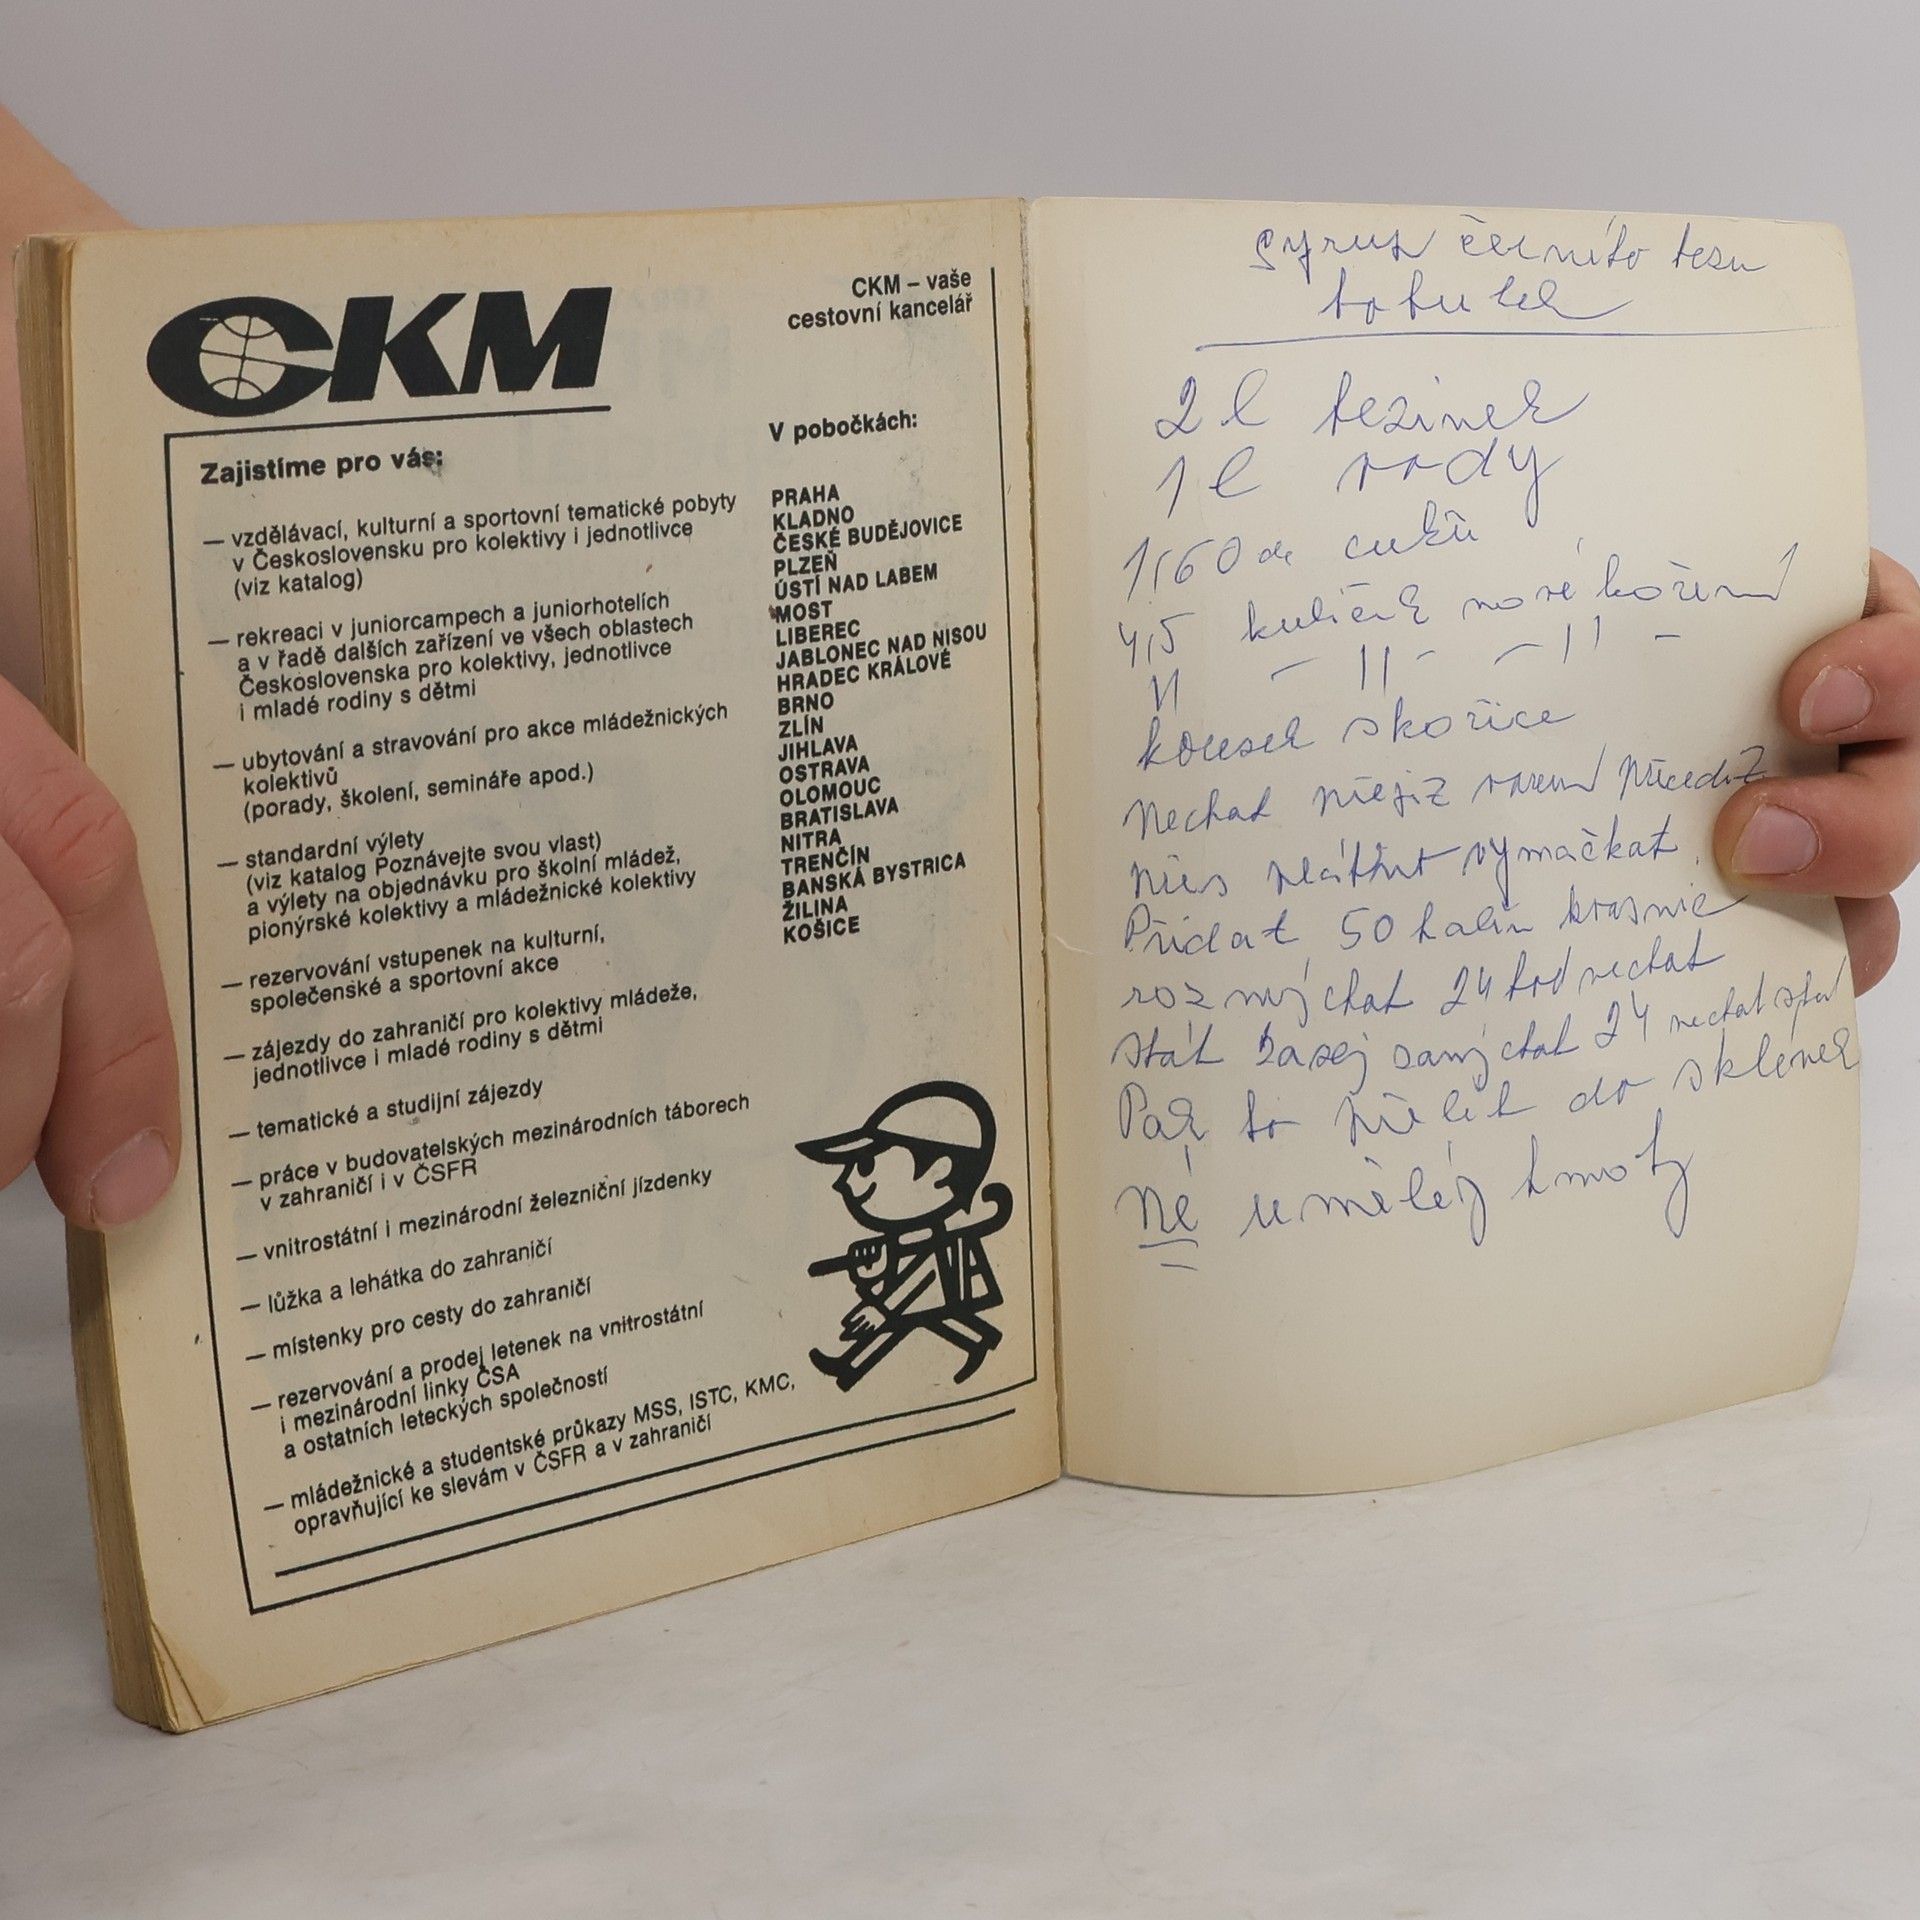 CKM
CKM – vaše
cestovní kancelář
Zajistíme pro vás:
— vzdělávací, kulturní a sportovní tematické pobyty
v Československu pro kolektivy i jednotlivce
(viz katalog)
— rekreaci v juniorcampech a juniorhotelích
a v řadě dalších zařízení ve všech oblastech
Československa pro kolektivy, jednotlivce
i mladé rodiny s dětmi
— ubytování a stravování pro akce mládežnických
kolektivů
(porady, školení, semináře apod.)
— standardní výlety
(viz katalog Poznávejte svou vlast)
a výlety na objednávku pro školní mládež,
pionýrské kolektivy a mládežnické kolektivy
— rezervování vstupenek na kulturní,
společenské a sportovní akce
— zájezdy do zahraničí pro kolektivy mládeže,
jednotlivce i mladé rodiny s dětmi
— tematické a studijní zájezdy
— práce v budovatelských mezinárodních táborech
v zahraničí i v ČSFR
— vnitrostátní i mezinárodní železniční jízdenky
— lůžka a lehátka do zahraničí
— místenky pro cesty do zahraničí
— rezervování a prodej letenek na vnitrostátní
i mezinárodní linky ČSA
a ostatních leteckých společností
— mládežnické a studentské průkazy MSS, ISTC, KMC,
opravňující ke slevám v ČSFR a v zahraničí
V pobočkách:
PRAHA
KLADNO
ČESKÉ BUDĚJOVICE
PLZEŇ
ÚSTÍ NAD LABEM
MOST
LIBEREC
JABLONEC NAD NISOU
HRADEC KRÁLOVÉ
BRNO
ZLÍN
JIHLAVA
OSTRAVA
OLOMOUC
BRATISLAVA
NITRA
TRENČÍN
BANSKÁ BYSTRICA
ŽILINA
KOŠICE
Syrup černího bezu
bobulek
2 l bezinek
1 l vody
1,60 dk cukru
4,5 kuliček nové koření
11 – 11 – – 11 –
kousek skořice
Nechat přejiz varem přecediz
přes plátno vymačkat.
Přidat 50
rozmýchat 24 hod nechat
stát zasej zamýchat 24 nechat stát
Pak to přelít do sklének
Ne umělej hmoty